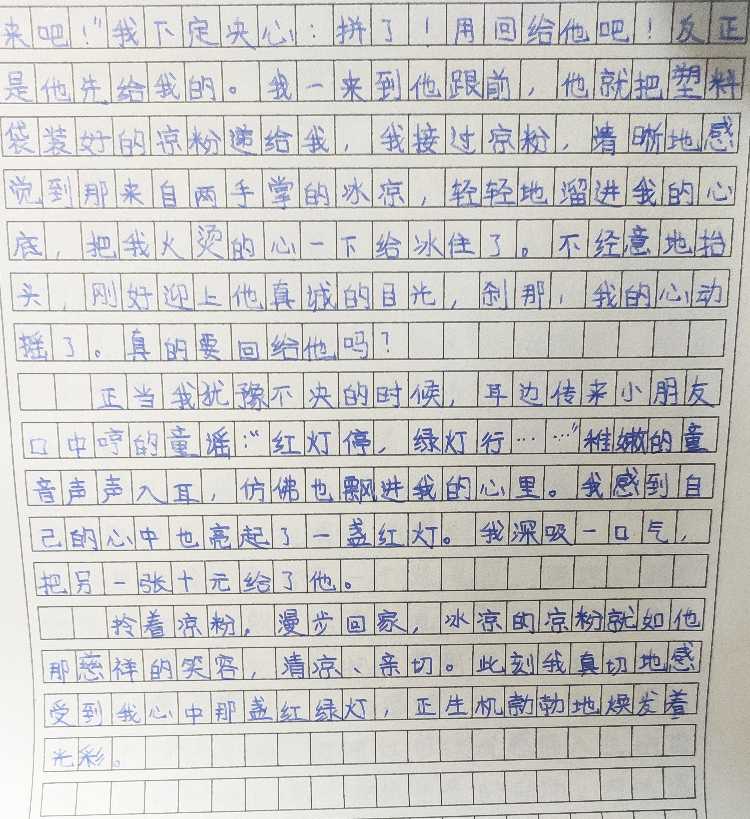 来吧！"我下定决心：拼了！用回给他吧！反正
是他先给我的。我一来到他跟前，他就把塑料
袋装好的凉粉递给我，我接过凉粉，清晰地感
觉到那来自两手掌的冰凉，轻轻地溜进我的心
底，把我火烫的心一下给冰住了。不经意地抬
头，刚好迎上他真诚的目光，刹那，我的心动
摇了。真的要回给他吗？
正当我犹豫不决的时候，耳边传来小朋友
口中哼的童谣："红灯停，绿灯行……"稚嫩的童
音声声入耳，仿佛也飘进我的心里。我感到自
己的心中也亮起了一盏红灯。我深吸一口气，
把另一张十元给了他。
拎着凉粉，漫步回家，冰凉的凉粉就如他
那慈祥的笑容，清凉、亲切。此刻我真切地感
受到我心中那盏红绿灯，正生机勃勃地焕发着
光彩。